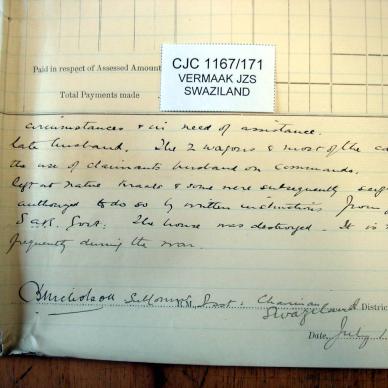 CJC 1167/171
VERMAAK JZS
SWAZILAND
Paid in respect of Assessed Amount
Total Payments made
circumstances & in need of assistance.
late husband. The 2 wagons & most of the
the use of claimants husband on commando.
left at native kraals & some were subsequently
authorized to do so by written instructions from
Govt. The house was destroyed. It is
frequently during the war.
Chairman
Swaziland District
Date, July